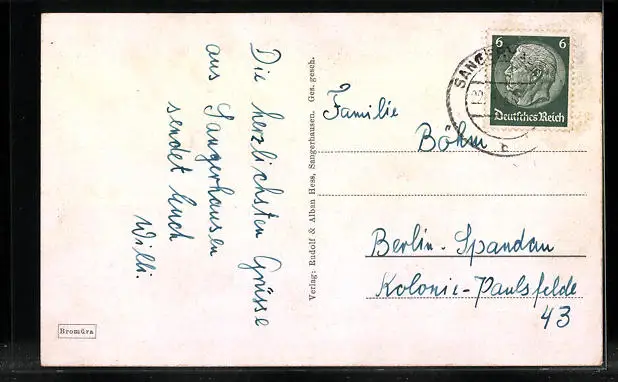 Die herzlichsten Grüsse
aus Sangerhausen
sendet Euch
Willi.
Bromüra
Verlag: Rudolf & Alban Hess, Sangerhausen. Ges. gesch.
6 6
Deutsches Reich
Familie
Böhm
Berlin-Spandau
Kolonie-Paulsfelde
43